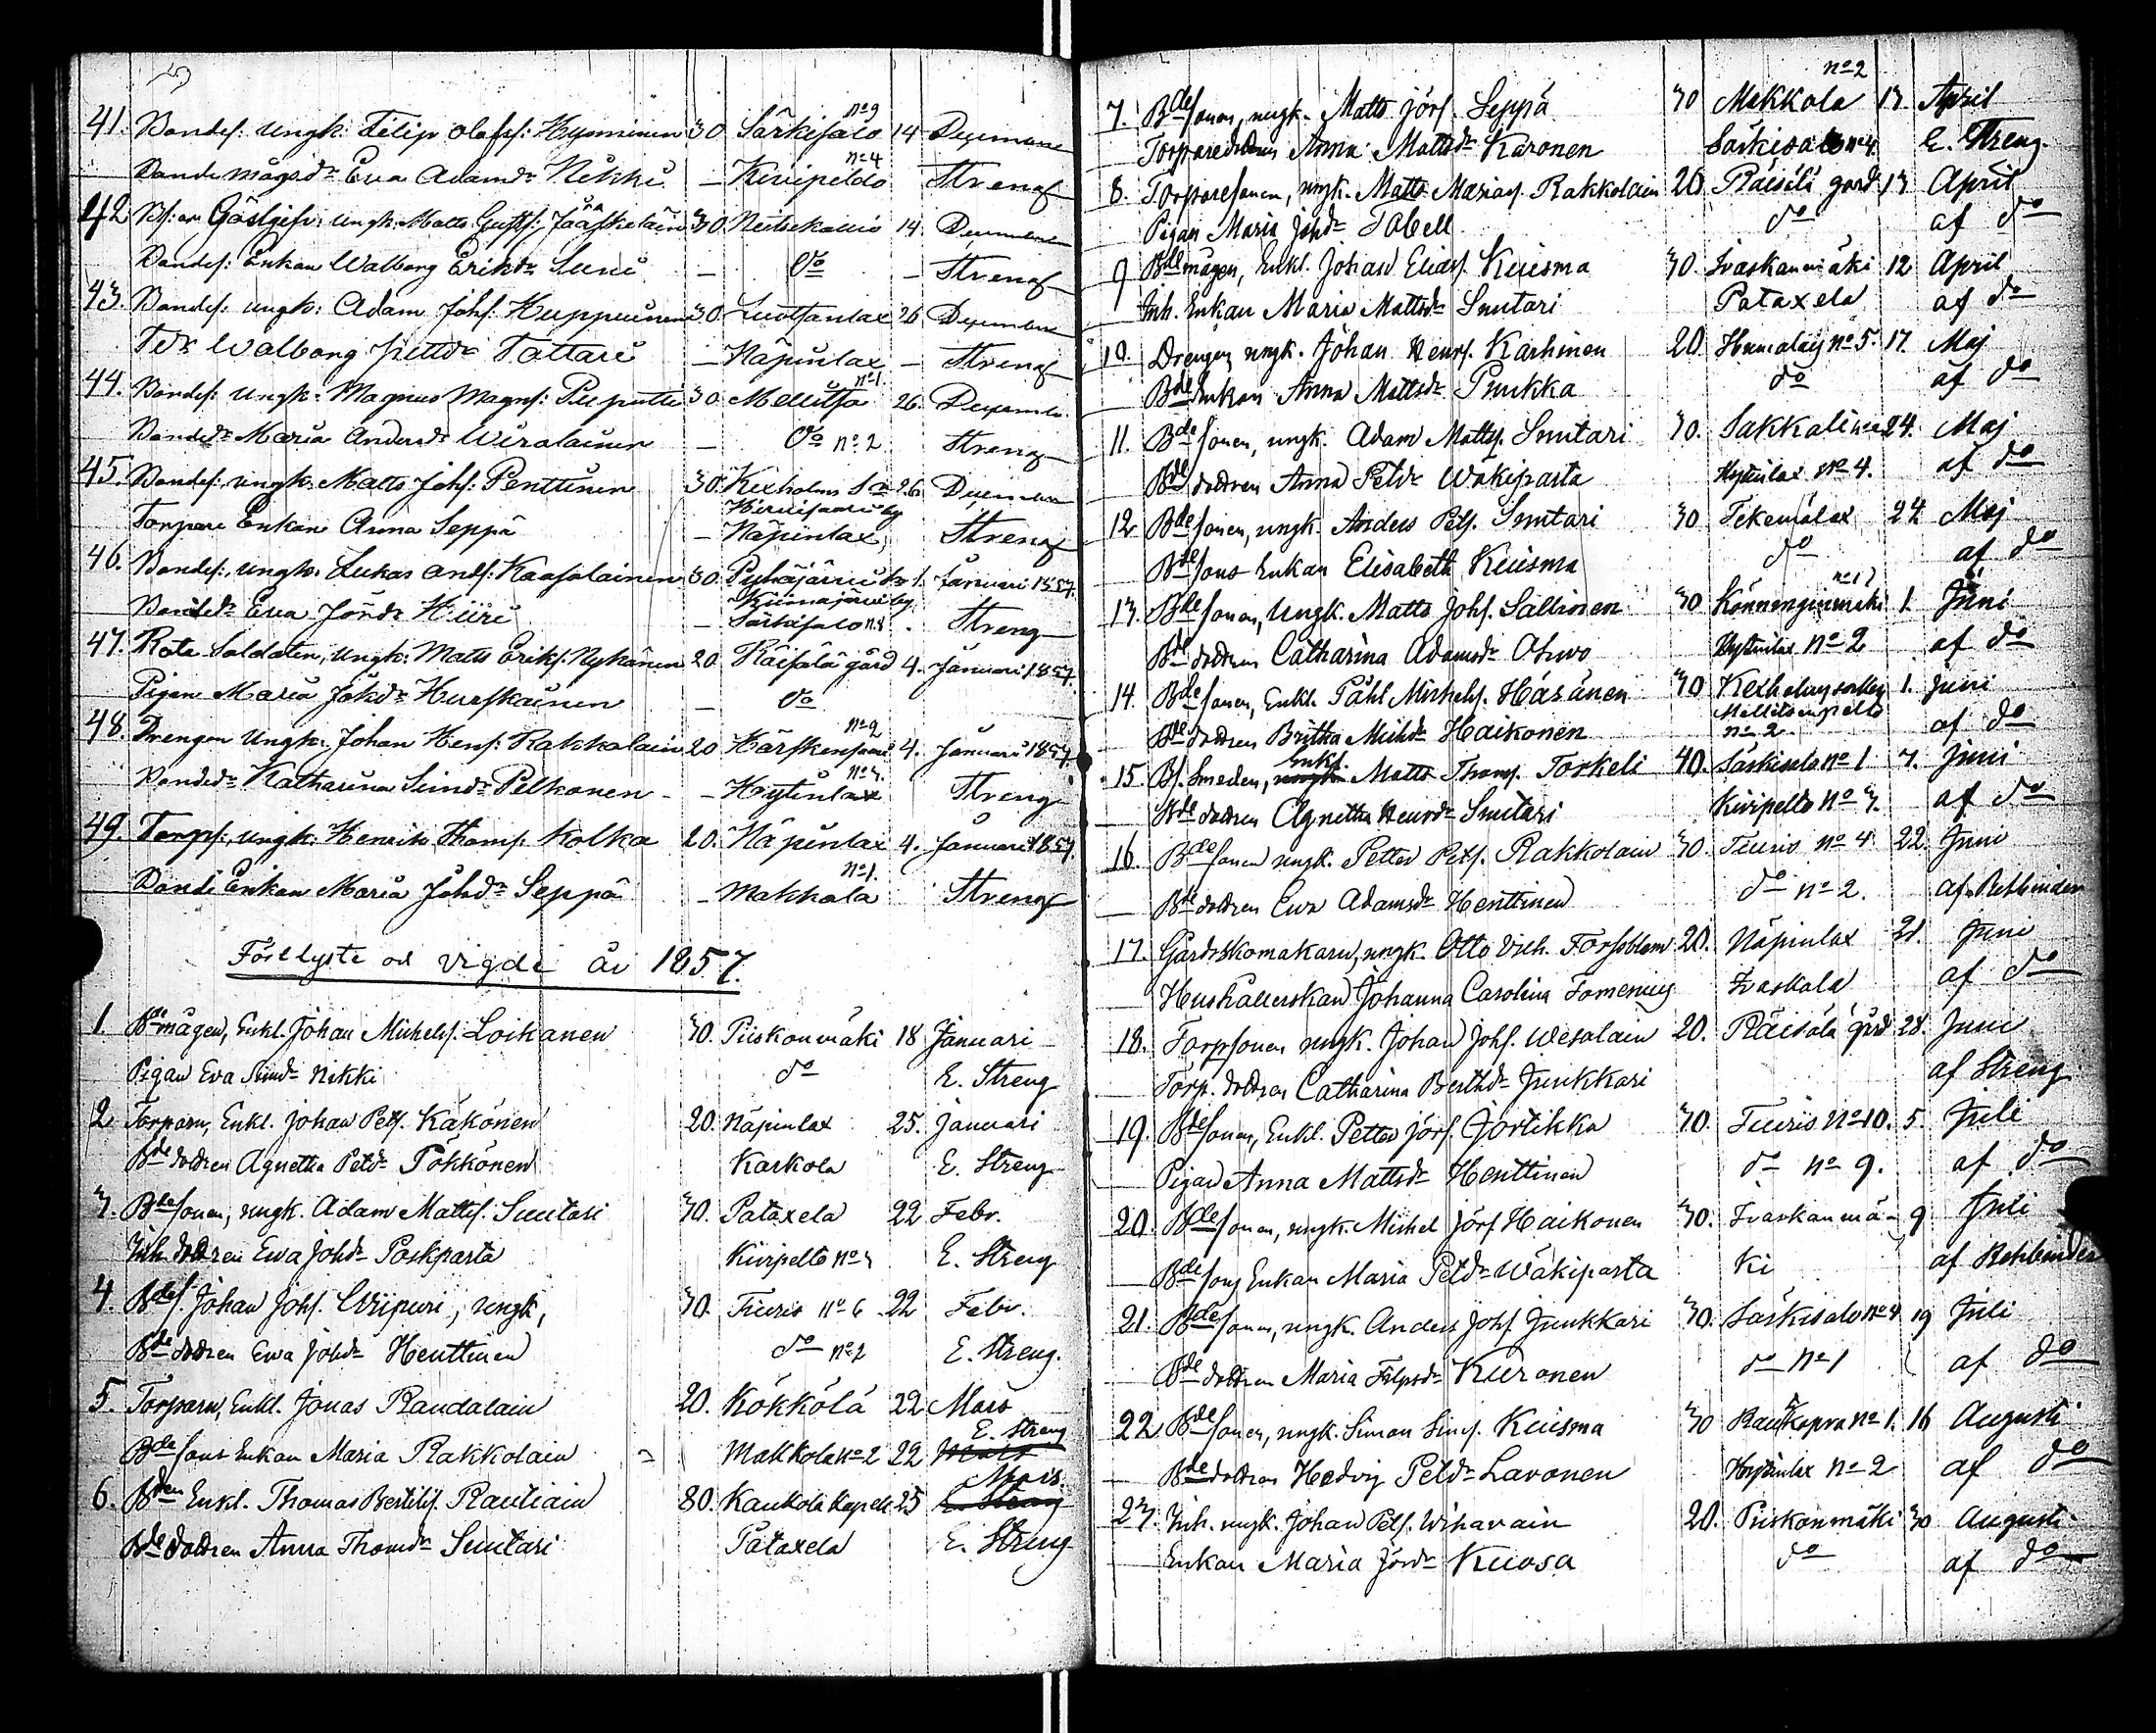 41. Bondes: Ungk: Filip Olofss: Hyvönen 30. Särkisalo nº 9 14 December
Bonde mågsdr Eva Adamdr Nikki — Kivipeldo nº 4 Streng
42 Bs: ar Gästgifv: Ungk: Matts Gustfs: Jääskeläin 30. Neitsekallio 14. December
Bondes: Enkan Walborg Eriksdr Suni — Do — Streng
43. Bondes: ungk: Adam Johs: Huppunen 30. 26 December
Tdr Walborg Pettdr Tattari — Näpinlax — Streng
44. Bondes: Ungk: Magnus Magns: Puputti 30. Mellitsa nº 1. 26. December
Bondedr Maria Andersdr Wiralainen — Do nº 2. Streng
45. Bondes: ungk: Matts Johs: Penttinen 30. Kexholms Sn 26. December
Hirvisaari by
Torpare Enkan Anna Seppä — Näpinlax, Streng
46. Bondes: Ungk: Lukas Ands: Kaasalainen 30. Pyhäjärvi Sn 1. Januari 1857.
Kiimajärvi by
Bondedr Eva Jörsdr Hiiri — Särkisalo n:8. Streng
47. Rote Soldaten, Ungk: Matts Eriks: Nykänen 20. Räisälä gård 4. Januari 1857.
Pigan Maria Johdr Hurskainen — Do
48. Drengen Ungk: Johan Hens: Rakkolain 20 Härskensaari nº 2 4. Januari 1857.
Bondedr Katharina Simdr Pelkonen — Hytinlax nº 3. Streng
49. Torps: ungk: Henrik Thoms: Kolka 20. Näpinlax 4. Januari 1857.
Bonde Enkan Maria Johdr Seppä — Makkola nº 1. Streng
Förelyste och vigde år 1857.
1. Bdemågen, Enkl. Johan Michels. Loikanen 30. Piiskonmäki 18 Januari
Pigan Eva Simdr Nikki do E. Streng
2 Torparn, Enkl. Johan Pets. Käkönen 20. Näpinlax 25. Januari
Bdedottren Agnetha Petdr Pökkönen Karkola E. Streng
3. Bdesonen, ungk. Adam Matts. Suutari 30. Pataxela 22 Febr.
Inh. dottren Ewa Johdr Poskparta Kivipelto nº 3 E. Streng
4. Bdes. Johan Johs. Wiipuri, Ungk, 30. Tiuris nº 6 22 Febr.
Bdedottren Ewa Johdr Henttinen do nº 2 E. Streng.
5. Torparn, Enkl. Jonas Raudalain 20. Kökkölä 22 Mars
E. Streng
Bdesons Enkan Maria Rakkolain Makkola nº 2 22
Mars.
6. Bden Enkl. Thomas Bertils. Rautiain 80. Kaukola Kapell 25 E. Streng
Bdedottren Anna Thomdr Suutari Pataxela E. Streng
7. Bdesonen, ungk. Matts Jörs. Seppä 30 Makkola nº 2 13 April
Torparedottren Anna Mattsdr Karonen Särkisalo nº 4 E. Streng.
8. Torparesonen, ungk. Matts Mårias. Rakkolain 20 Räisälä gård 13 April
Pigan Maria Johdr Tabell do af do
9 Bdemågen, Enkl. Johan Elias. Kuisma 30. Ivaskanmäki 12 April
Inh. Enkan Maria Mattsdr Suutari Pataxela af do
10. Drengen, ungk. Johan Henrs. Karhinen 20. Humalaij nº 5. 17. Maj
BdeEnkan Anna Mattsdr Puukka do af do
11. Bdesonen, ungk. Adam Matts. Suutari 30. Sakkali nº 2 24. Maj
Bdedottren Anna Petdr Wäkiparta Hytinlax nº 4. af do
12 Bdesonen, ungk. Anders Pets. Suutari 30 Tekemälax 24 Maj
Bdesons Enkan Elisabeth Kuisma do af do
13. Bdesonen, Ungk. Matts Johs. Sallinen 30 Könnenginmäki nº 17 1. Juni
Bdedottren Catharina Adamsdr Ohvo Hytinlax nº 2 af do
14. Bdesonen, Enkl. Påhl Michels. Häränen 30 Kexholmssocken 1. Juni
Mellitsenpelto
Bdedottren Britha Michdr Haikonen nº 2. af do
15. Bs. Smeden, Enkl. Matts Thoms. Torkeli 40. Särkisalo nº 1 7. Juni
Bdedottren Agnetha Henrdr Suutari Kivipelto nº 3. af do
16. Bdesonen ungk. Petter Pets. Rakkolain 30. Tiuris nº 4. 22. Juni
Bdedottren Ewa Adamsdr Henttinen do nº 2. af Rehbinder
17. Gårdskomakarn, ungk. Otto Vilh. Forsblom 20. Näpinlax 21. Juni
Hushållerskan Johanna Carolina Fomenius Ivaskala af do
18. Torpsonen ungk. Johan Johs. Wesalain 20. Räisälä gård 28. Juni
Torp. dottren Catharina Berthdr Junkkari af Streng
19. Bdesonen, Enkl. Petter Jörs. Jortikka 30. Tiuris nº 10. 5. Juli
Pigan Anna Mattsdr Henttinen do nº 9. af do
20. Bdesonen, ungk. Michel Jörs. Haikonen 30. Ivaskanmä- 9 Juli
Bdesons Enkan Maria Petdr Wäkiparta ki af Rehbinder
21. Bdesonen, ungk. Anders Johs. Junkkari 30. Särkisalo nº 4 19 Juli
Bdedottren Maria Filpsdr Kuronen do nº 1 af do
22 Bdesonen, ungk. Simon Sims. Kuisma 30 nº 1. 16 Augusti
Bdedottren Hedvig Petdr Lavonen Hytinlax nº 2 af do
23. Inh. ungk. Johan Pets. Wihavain 20. Piiskonmäki 30 Augusti.
Enkan Maria Jörsdr Kuosa do af do